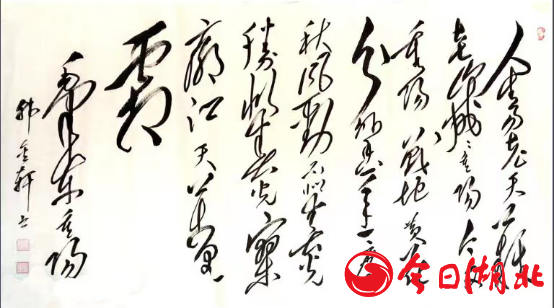 人生易老天难
老岁岁重阳今又
重阳战地黄花
分外香一年一度
秋风劲不似春光
胜似春光寥
廓江天万里
霜
毛泽东重阳
书
今日湖北